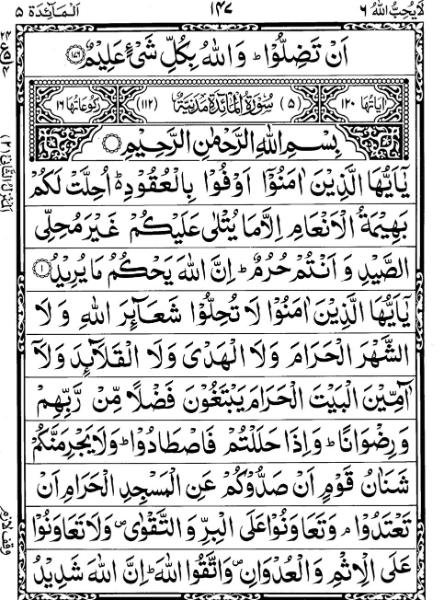 لَا يُحِبُّ اللّٰهُ ٦ ١٤٧ اَلْمَآئِدَة ٥
اَنْ تَضِلُّوْا ؕ وَاللّٰهُ بِكُلِّ شَیْءٍ عَلِيْمٌ ﴿١٧٦﴾
اٰيَاتُهَا ١٢٠ ﴿٥﴾ سُوْرَةُ الْمَآئِدَةِ مَدَنِيَّةٌ ﴿١١٢﴾ رُكُوْعَاتُهَا ١٦
بِسْمِ اللّٰهِ الرَّحْمٰنِ الرَّحِيْمِ
يٰۤاَيُّهَا الَّذِيْنَ اٰمَنُوْۤا اَوْفُوْا بِالْعُقُوْدِ ؕ اُحِلَّتْ لَكُمْ
بَهِيْمَةُ الْاَنْعَامِ اِلَّا مَا يُتْلٰى عَلَيْكُمْ غَيْرَ مُحِلِّی
الصَّيْدِ وَ اَنْتُمْ حُرُمٌ ؕ اِنَّ اللّٰهَ يَحْكُمُ مَا يُرِيْدُ ﴿١﴾
يٰۤاَيُّهَا الَّذِيْنَ اٰمَنُوْا لَا تُحِلُّوْا شَعَآئِرَ اللّٰهِ وَ لَا
الشَّهْرَ الْحَرَامَ وَلَا الْهَدْیَ وَلَا الْقَلَآئِدَ وَلَاۤ
آٰمِّيْنَ الْبَيْتَ الْحَرَامَ يَبْتَغُوْنَ فَضْلًا مِّنْ رَّبِّهِمْ
وَ رِضْوَانًا ؕ وَ اِذَا حَلَلْتُمْ فَاصْطَادُوْا ؕ وَلَا يَجْرِمَنَّكُمْ
شَنَاٰنُ قَوْمٍ اَنْ صَدُّوْكُمْ عَنِ الْمَسْجِدِ الْحَرَامِ اَنْ
تَعْتَدُوْا ۘ وَ تَعَاوَنُوْا عَلَى الْبِرِّ وَ التَّقْوٰى ۪ وَلَا تَعَاوَنُوْا
عَلَى الْاِثْمِ وَ الْعُدْوَانِ ۪ وَاتَّقُوا اللّٰهَ ؕ اِنَّ اللّٰهَ شَدِيْدُ
وقف لازم